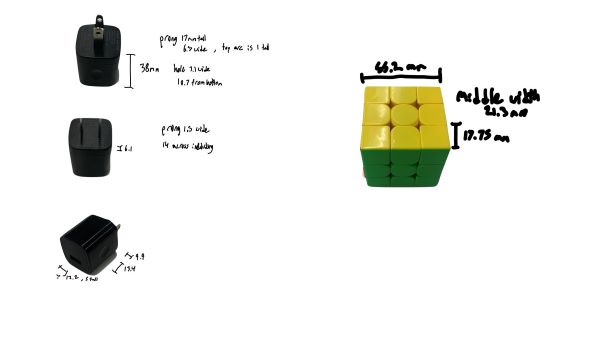 prong 17mm tall
6.3 wide, top arc is 1 tall
38mm
hole 3.1 wide
10.7 from bottom
prong 1.5 wide
14 across including
6.1
9.9
13.4
12.2, 5 tall
56.2 mm
middle width
21.3 mm
17.75 mm